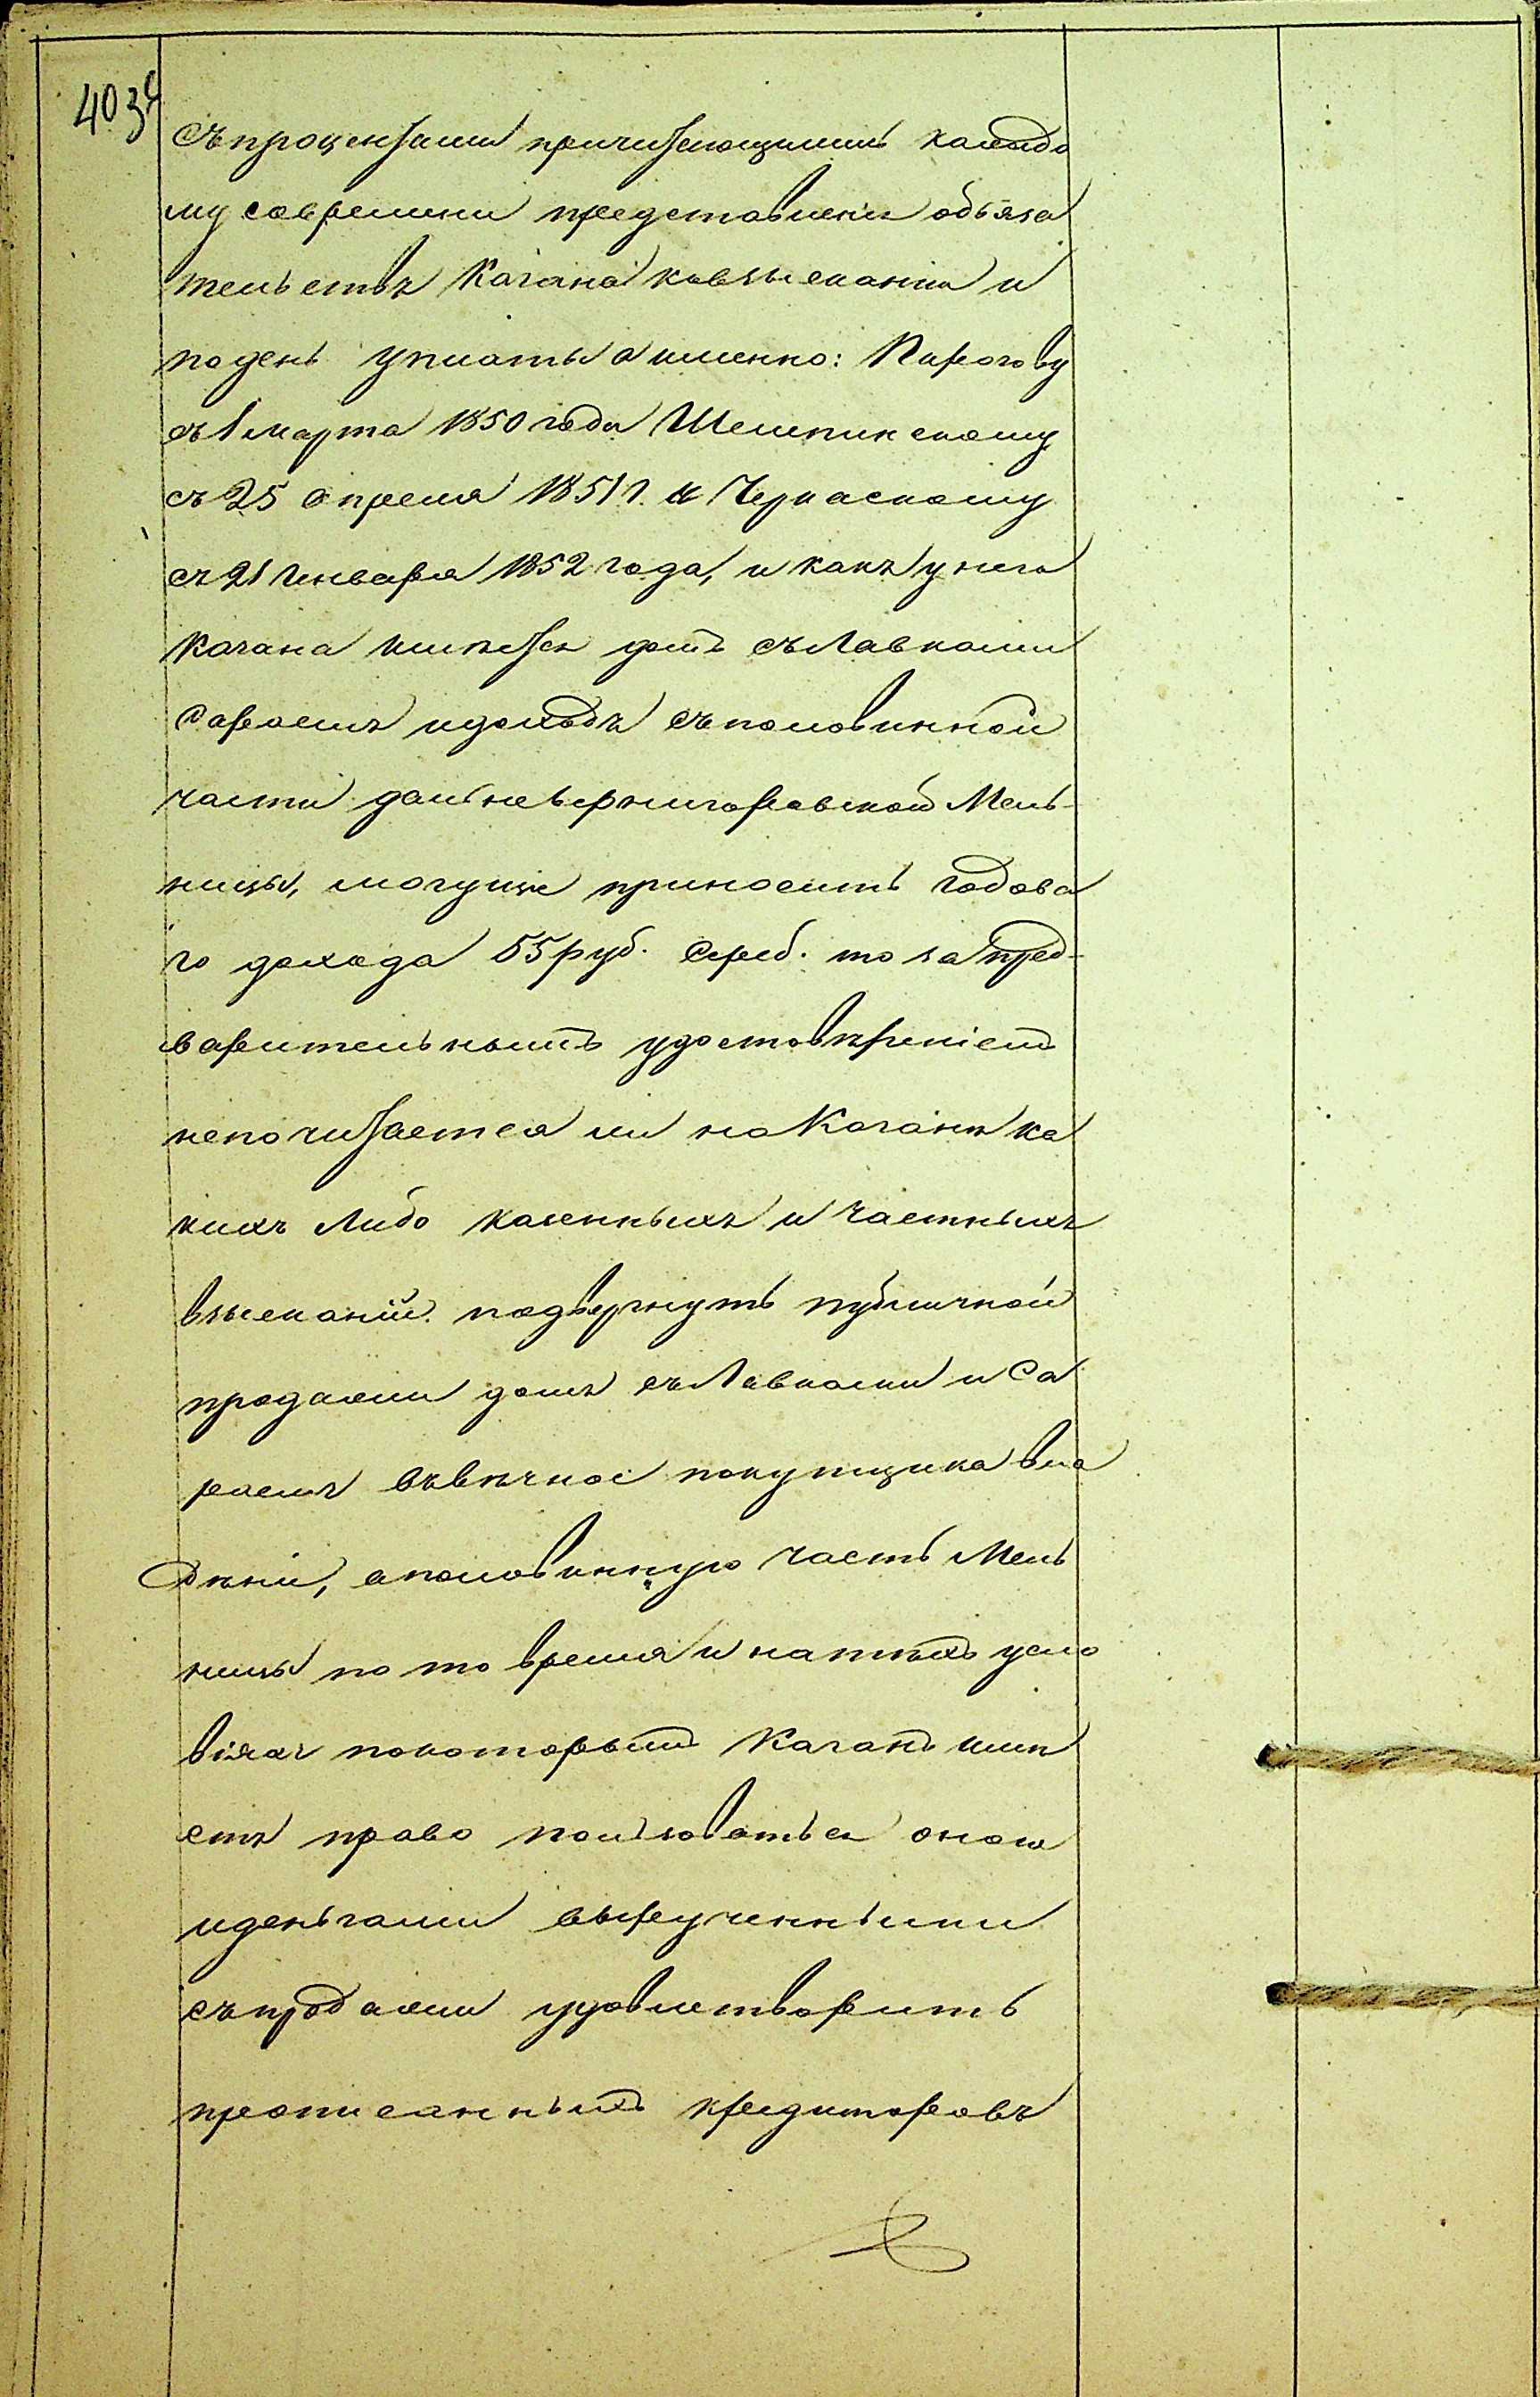 403
съ процентами причитающимися каждо
му со времени представления обяза
тельствъ Кагана ко взысканию и
по день уплаты а именно: Пирогову
съ 1 марта 1850 года Шелепинскому
съ 25 апреля 1851 г. и Черкаскому
съ 21 Генваря 1852 года, и какъ у него
Кагана имеется домъ съ Лавками
Сараемъ и доходъ съ половинной
части дальневернигоровской Мель-
ницы, могущие приносить годова
го дохода 55 руб. сереб. то за пред-
варительнымъ удостовѣреніемъ
непочитается ли на Каганѣ ка
кихъ Либо казенныхъ и частныхъ
взысканій подвергнуть публичной
продажи домъ съ Лавками и Са
раемъ въ вѣчное покупщика вла
дѣніи, а половинную часть Мель
ницы по то время и на тѣхъ усло
віяхъ по которымъ Каганъ имѣ
етъ право пользоваться оною
и деньгами вырученными
съ продажи удовлетворить
прописанныхъ кредиторовъ